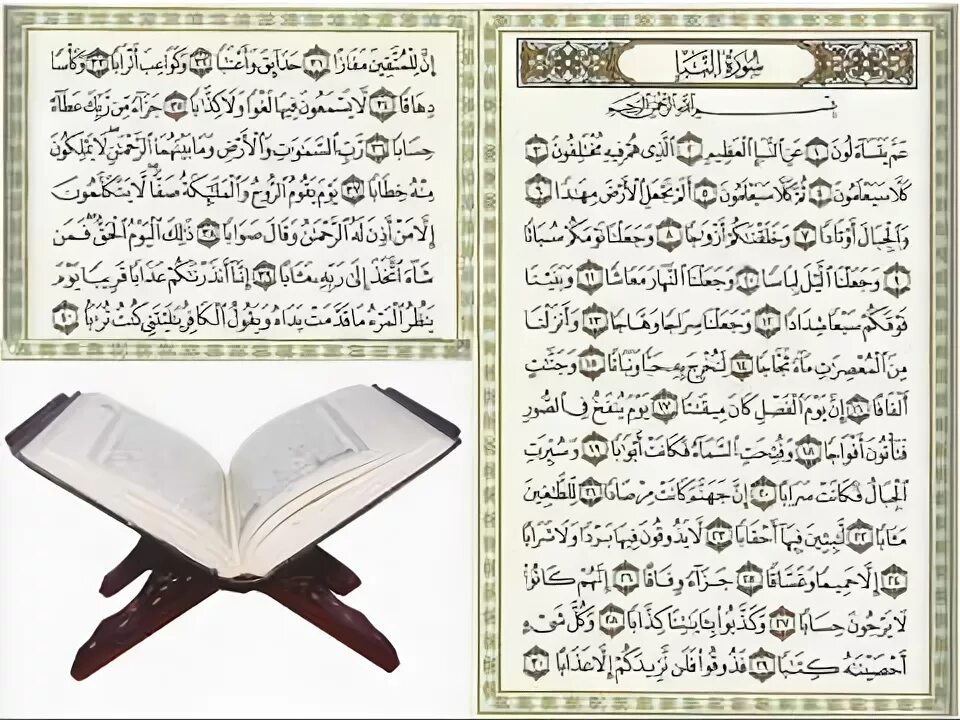 سُورَةُ النَّبَإِ
بِسْمِ اللَّهِ الرَّحْمَٰنِ الرَّحِيمِ
عَمَّ يَتَسَآءَلُونَ ١ عَنِ ٱلنَّبَإِ ٱلْعَظِيمِ ٢ ٱلَّذِى هُمْ فِيهِ مُخْتَلِفُونَ ٣
كَلَّا سَيَعْلَمُونَ ٤ ثُمَّ كَلَّا سَيَعْلَمُونَ ٥ أَلَمْ نَجْعَلِ ٱلْأَرْضَ مِهَٰدًا ٦
وَٱلْجِبَالَ أَوْتَادًا ٧ وَخَلَقْنَٰكُمْ أَزْوَٰجًا ٨ وَجَعَلْنَا نَوْمَكُمْ سُبَاتًا
٩ وَجَعَلْنَا ٱلَّيْلَ لِبَاسًا ١٠ وَجَعَلْنَا ٱلنَّهَارَ مَعَاشًا ١١ وَبَنَيْنَا
فَوْقَكُمْ سَبْعًا شِدَادًا ١٢ وَجَعَلْنَا سِرَاجًا وَهَّاجًا ١٣ وَأَنزَلْنَا
مِنَ ٱلْمُعْصِرَٰتِ مَآءً ثَجَّاجًا ١٤ لِّنُخْرِجَ بِهِۦ حَبًّا وَنَبَاتًا ١٥ وَجَنَّٰتٍ
أَلْفَافًا ١٦ إِنَّ يَوْمَ ٱلْفَصْلِ كَانَ مِيقَٰتًا ١٧ يَوْمَ يُنفَخُ فِى ٱلصُّورِ
فَتَأْتُونَ أَفْوَاجًا ١٨ وَفُتِحَتِ ٱلسَّمَآءُ فَكَانَتْ أَبْوَٰبًا ١٩ وَسُيِّرَتِ
ٱلْجِبَالُ فَكَانَتْ سَرَابًا ٢٠ إِنَّ جَهَنَّمَ كَانَتْ مِرْصَادًا ٢١ لِّلطَّٰغِينَ
مَـَٔابًا ٢٢ لَّٰبِثِينَ فِيهَآ أَحْقَابًا ٢٣ لَّا يَذُوقُونَ فِيهَا بَرْدًا وَلَا شَرَابًا
٢٤ إِلَّا حَمِيمًا وَغَسَّاقًا ٢٥ جَزَآءً وِفَاقًا ٢٦ إِنَّهُمْ كَانُوا۟
لَا يَرْجُونَ حِسَابًا ٢٧ وَكَذَّبُوا۟ بِـَٔايَٰتِنَا كِذَّابًا ٢٨ وَكُلَّ شَىْءٍ
أَحْصَيْنَٰهُ كِتَٰبًا ٢٩ فَذُوقُوا۟ فَلَن نَّزِيدَكُمْ إِلَّا عَذَابًا ٣٠
إِنَّ لِلْمُتَّقِينَ مَفَازًا ٣١ حَدَآئِقَ وَأَعْنَٰبًا ٣٢ وَكَوَاعِبَ أَتْرَابًا ٣٣ وَكَأْسًا
دِهَاقًا ٣٤ لَّا يَسْمَعُونَ فِيهَا لَغْوًا وَلَا كِذَّٰبًا ٣٥ جَزَآءً مِّن رَّبِّكَ عَطَآءً
حِسَابًا ٣٦ رَّبِّ ٱلسَّمَٰوَٰتِ وَٱلْأَرْضِ وَمَا بَيْنَهُمَا ٱلرَّحْمَٰنِ لَا يَمْلِكُونَ
مِنْهُ خِطَابًا ٣٧ يَوْمَ يَقُومُ ٱلرُّوحُ وَٱلْمَلَٰٓئِكَةُ صَفًّا لَّا يَتَكَلَّمُونَ
إِلَّا مَنْ أَذِنَ لَهُ ٱلرَّحْمَٰنُ وَقَالَ صَوَابًا ٣٨ ذَٰلِكَ ٱلْيَوْمُ ٱلْحَقُّ فَمَن
شَآءَ ٱتَّخَذَ إِلَىٰ رَبِّهِۦ مَـَٔابًا ٣٩ إِنَّآ أَنذَرْنَٰكُمْ عَذَابًا قَرِيبًا يَوْمَ
يَنظُرُ ٱلْمَرْءُ مَا قَدَّمَتْ يَدَاهُ وَيَقُولُ ٱلْكَافِرُ يَٰلَيْتَنِى كُنتُ تُرَٰبًۢا ٤٠